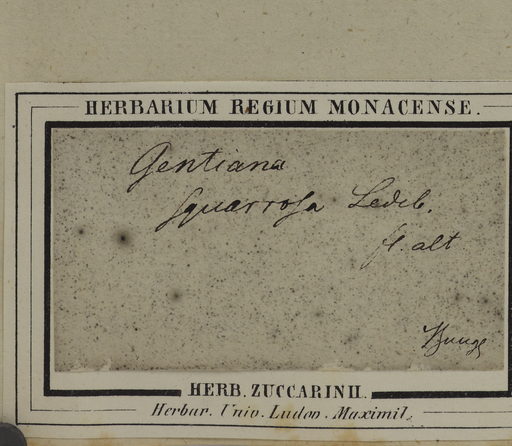 HERBARIUM REGIUM MONACENSE.
Gentiana
squarrosa Ledeb.
fl. alt
Bunge
HERB. ZUCCARINII.
Herbar. Univ. Ludov. Maximil.